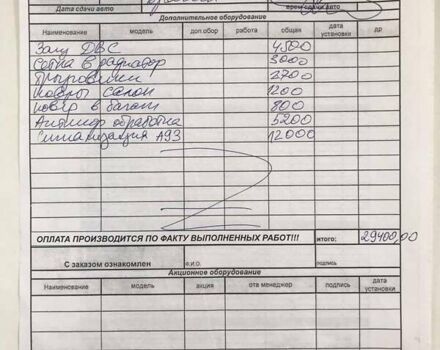 Дата сдачи авто время сдачи авто
Дополнительное оборудование
Наименование модель доп.обор работа общая дата установки др
Защ ДВС 4500
Сетка в радиатор 3000
2700
Ковры салон 1200
ковёр в багаж 800
Антикор обработка 5200
Сигнализация А93 12000
ОПЛАТА ПРОИЗВОДИТСЯ ПО ФАКТУ ВЫПОЛНЕННЫХ РАБОТ!!! итого: 29400,00
С заказом ознакомлен Ф.И.О. подпись
Акционное оборудование
Наименование модель акция ота менеджер подпись дата установки